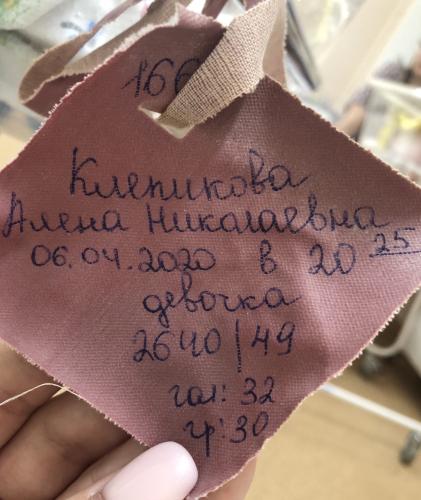 166
Клепикова
Алена Николаевна
06.04.2020 в 20 25
девочка
2640 | 49
гол: 32
гр: 30